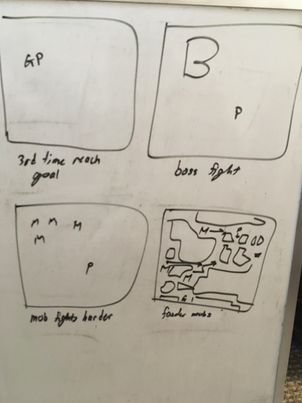 GP
3rd time reach
goal
B
P
boss fight
M M M
M
P
mob fights harder
M
M
M
G
faster mobs